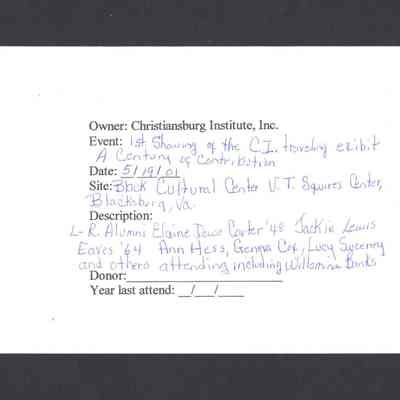 Owner: Christiansburg Institute, Inc.
Event: 1st Showing of the C.I. traveling exibit
A Century of Contribution
Date: 5/19/01
Site: Black Cultural Center V.T. Squires Center,
Blacksburg, Va.
Description:
L-R. Alumni Elaine Dowe Carter '48 Jackie Lewis
Eaves '64 Ann Hess, Genna Cox, Lucy Sweeney
and others attending including Willamina Banks
Donor:
Year last attend: __/__/____